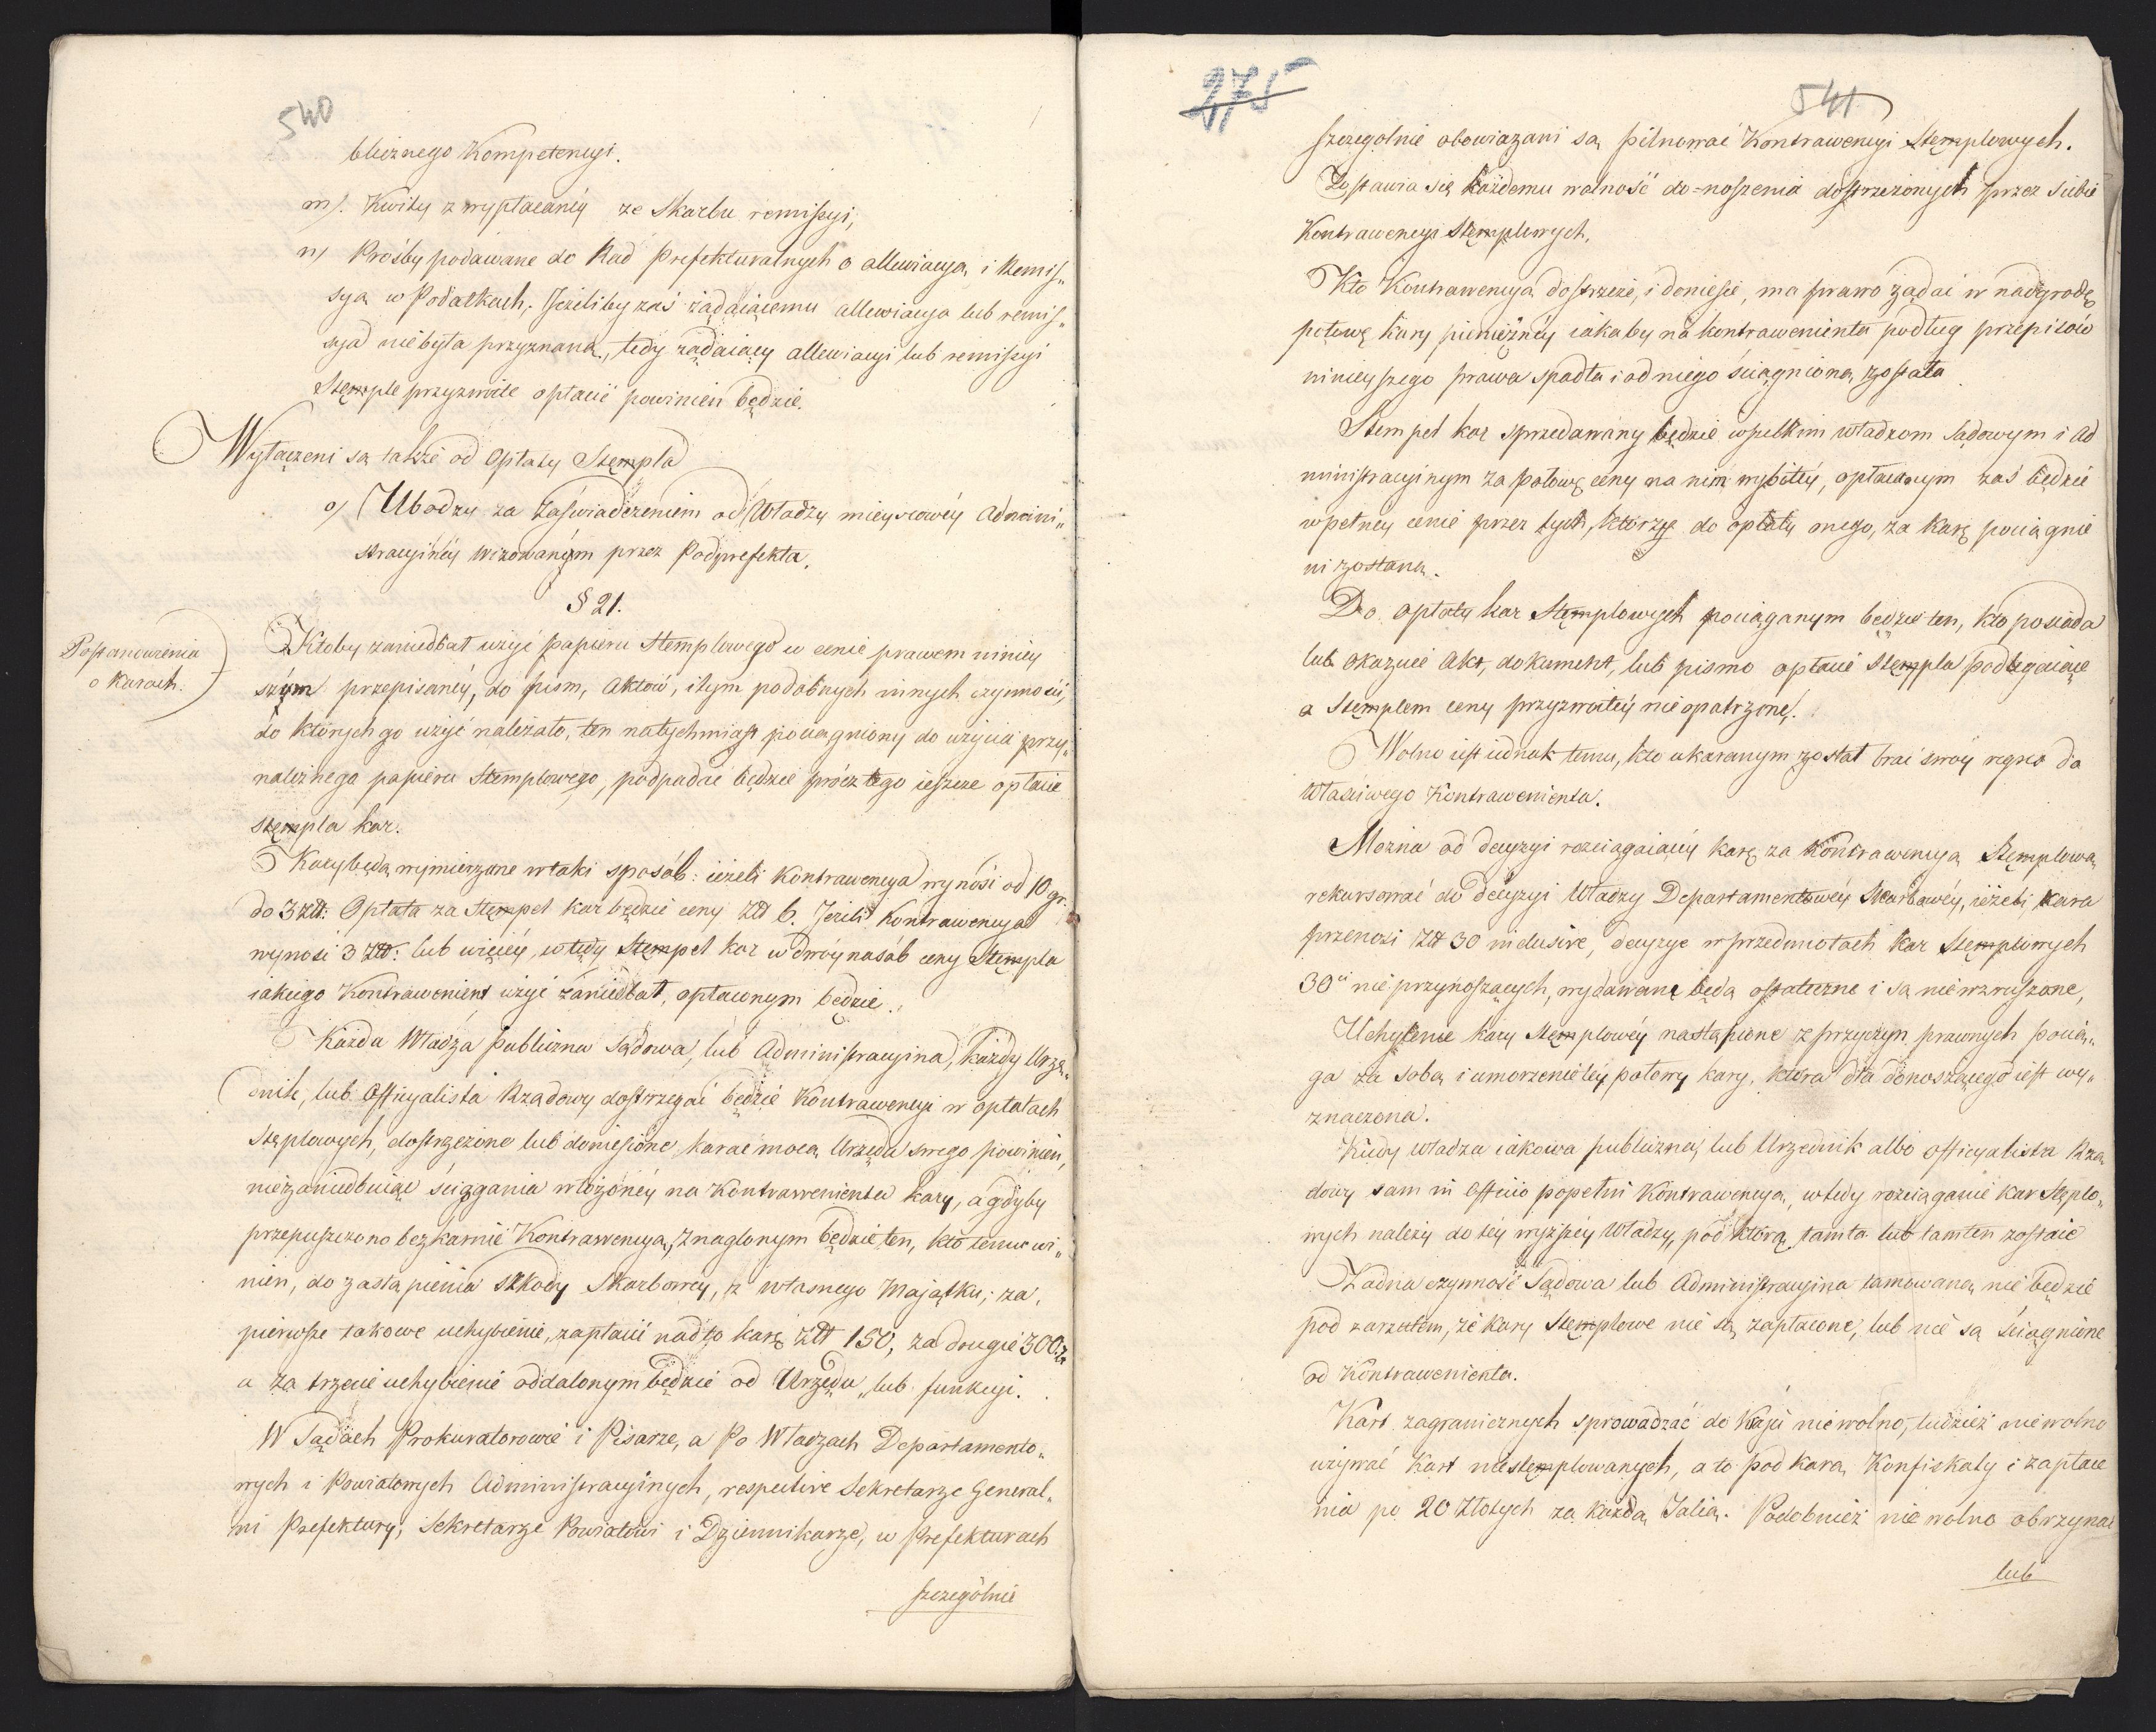 540
blicznego Kompetencyi.
m). Kwity z wypłacanéy ze Skarbu remissyi,
n) Prośby podawane do Rad Prefekturalnych o allewiacyą i Remis„
syą w Podatkach. Jeżeliby zaś żądaiącemu allewiacya lub remis„
sya niebyła przyznaną, tedy żądaiący allewiacyi lub remissyi
Stęmple przyzwoite opłacić powinien będzie.
Wyłączeni są także od Opłaty Stępla
o) Ubodzy za Zaświadczeniem od Władzy mieyscowéy Admini„
stracyinéy wizowanym przez Podprefekta.
§ 21.
Postanowienia
o Karach.
Ktoby zaniedbał użyć papieru Stemplowego w cenie prawem niniey
szym przepisanéy, do pism, Aktów, i tym podobnych innych czynności,
do których go użyć należało, ten natychmiast pociągniony do użycia przy„
należnego papieru Stemplowego, podpadać będzie prócz tego ieszcze opłacie
stępla kar.
Kary będą wymierzane w taki sposób: ieżeli Kontrawencya wynosi od 10 gr.
do 3 złt: Opłata za Stempel kar będzie ceny Złt 6. Jeżeli Kontrawencya
wynosi 3 Złt: lub więcéy, wtedy Stempel kar w dwóynasób ceny Stempla
iakiego Kontrawenient użyć zaniedbał, opłaconym będzie.
Każda Władza Publiczna Sądowa, lub Administracyina, każdy Urzę„
dnik, lub Officyalista Rządowy dostrzegać będzie Kontrawencyi w opłatach
Stęplowych, dostrzeżone lub doniesione karać mocą Urzędu swego powinien,
niezaniedbuiąc ściągania włożonéy na Kontrawenienta kary, a gdyby
przepuszczono bezkarnie Kontrawencyą, znaglonym będzie ten, kto temu wi„
nien, do zastąpienia szkody Skarbowey, z własnego Majątku; za
pierwsze takowe uchybienie, zapłacić nadto karę złt 150, za drugie 300 zł
a za trzecie uchybienie oddalonym będzie od Urzędu lub funkcyi.
W Sądach Prokuratorowie i Pisarze, a Po Władzach Departamento„
wych i Powiatowych Administracyinych, respective Sekretarze General„
ni Prefektury, Sekretarze Powiatowi i Dziennikarze, w Prefekturach
szczególnie
275
541
szczególnie obowiązani są pilnować Kontrawencyi Stęmplowych.
Zostawia się każdemu wolność do=noszenia dostrzeżonych przez siebie
Kontrawencyi Stęmplowych.
Kto Kontrawencyą dostrzeże, i doniesie, ma prawo żądać w nadgrodę
połowę kary pieniężnéy iakaby na kontrawenienta podług przepisów
ninieyszego prawa spadła i od niego ściągnioną została
Stempel kar sprzedawany będzie wszelkim władzom Sądowym i Ad
ministracyinym za połowę ceny na nim wybitéy, opłaconym zaś będzie
w pełney cenie przez tych, którzy do opłaty onego, za karę pociągnie
ni zostaną.
Do opłaty kar Stęmplowych pociąganym będzie ten, kto posiada
lub okazuie Akt, dokument, lub pismo opłacie Stępla podlegaiące
a Stęmplem ceny przyzwoitéy nie opatrzone.
Wolno iest iednak temu, kto ukaranym został brać swóy regres do
właściwego Kontrawenienta.
Można od decyzyi rozciągaiącéy karę za Kontrawencyą Stęmplową
rekursować do decyzyi Władzy Departamentowéy Skarbowéy, ieżeli kara
przenosi Złt 30 inclusive, decyzye w przedmiotach kar Stęmplowych
30u nie przynoszących, wydawane będą ostateczne i są niewzruszone,
Uchylenie kary Stęmplowéy nastąpione z przyczyn prawnych pocią„
ga za sobą i umorzenie téy połowy kary, która dla donoszącego iest wy„
znaczona.
Kiedy władza iakowa publiczna, lub Urzędnik albo officyalista Rzą
dowy sam in Officio popełni Kontrawencyą, wtedy rozciąganie kar Stęplo„
wych należy do téy wyższéy Władzy, pod którą tamta lub tamten zostaie
Żadna czynność Sądowa lub Administracyina tamowaną nie będzie
pod zarzutem, że kary Stęmplowe nie są zapłacone, lub nie są ściągnione
od Kontrawenienta.
Kart zagranicznych sprowadzać do Kraju niewolno, tudzież niewolno
używać Kart niestęmplowanych, a to pod karą Konfiskaty i zapłace
nia po 20 złotych za każdą Talią. Podobnież nie wolno obrzynać
lub